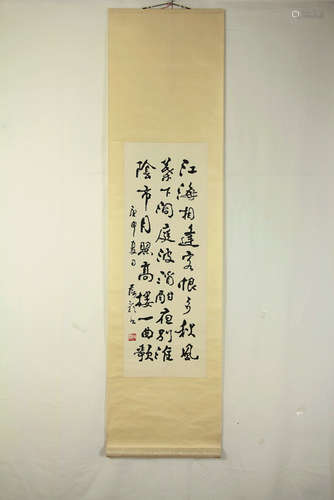 江海相逢客恨多秋風
葉下洞庭波酒酣夜別淮
陰市月照高樓一曲歌
庚申夏日